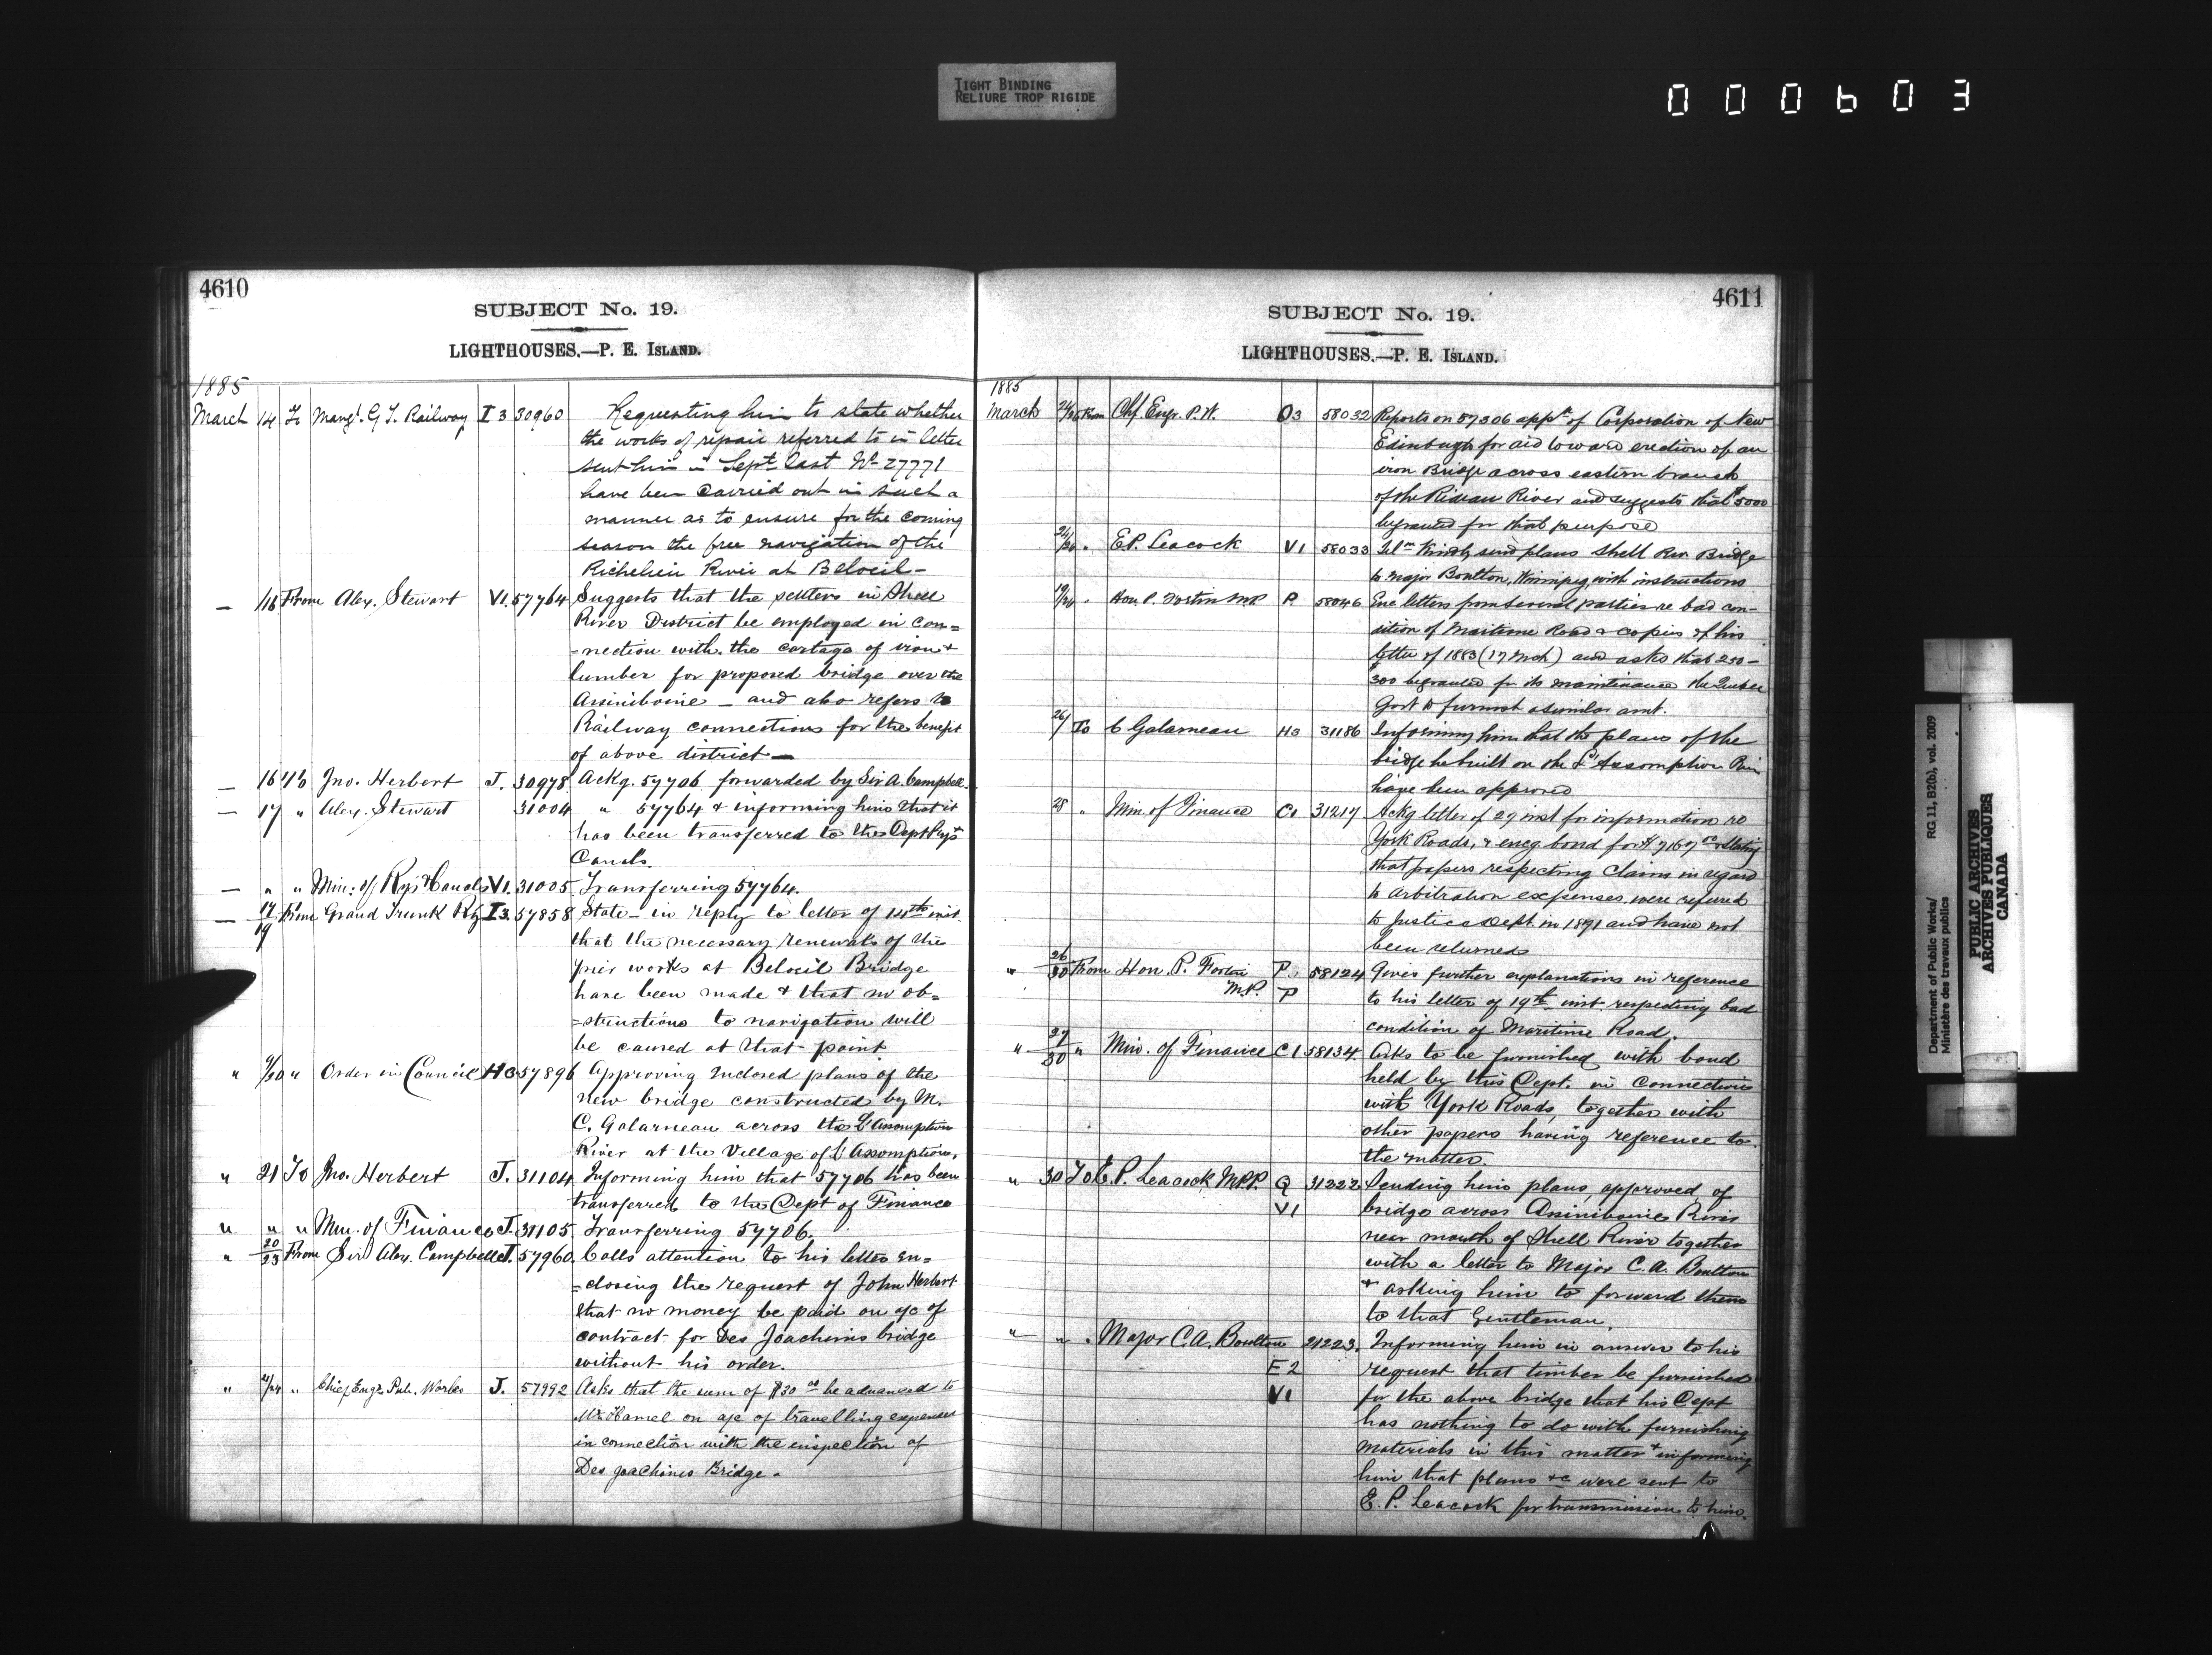 TIGHT BINDING
RELIURE TROP RIGIDE
000603
4610
SUBJECT No. 19.
LIGHTHOUSES.—P. E. ISLAND.
1885
March 14 To Mangr. G. T. Railway I 3 30960 Requesting him to state whether
the works of repair referred to in letter
sent him in Sept. last No 27771
have been carried out in such a
manner as to ensure for the coming
season the free navigation of the
Richelieu River at Beloeil—
— /16 From Alex. Stewart V1. 57764 Suggests that the settlers in Shell
River District be employed in con=
=nection with the cartage of iron &
lumber for proposed bridge over the
Assiniboine — and also refers to
Railway connections for the benefit
of above district —
— 16 To Jno. Herbert J. 30978 Ackg. 57706 forwarded by Sir A. Campbell.
— 17 " Alex. Stewart 31004 " 57764 & informing him that it
has been transferred to the Dept Rys &
Canals.
— " " Min: of Rys & Canals V1. 31005 Transferring 57764.
— 17/19 From Grand Trunk Ry I3. 57858 State — in reply to letter of 14th inst.
that the necessary renewals of the
pier works at Beloeil Bridge
have been made & that no ob=
=structions to navigation will
be caused at that point.
" 9/20 " Order in Council H3 57896 Approving inclosed plans of the
new bridge constructed by M.
C. Galarneau across the L'Assomption
River at the Village of L'Assomption.
" 21 To Jno. Herbert J. 31104 Informing him that 57706 has been
transferred to the Dept of Finance
" " " Min. of Finance J. 31105 Transferring 57706.
" 20/23 From Sir Alex. Campbell J. 57960. Calls attention to his letter en=
=closing the request of John Herbert
that no money be paid on a/c of
contract for Des Joachims bridge
without his order.
" 21/24 " Chief Engr. Pub. Works J. 57992 Asks that the sum of $30 00 be advanced to
Mr. Hamel on a/c of travelling expenses
in connection with the inspection of
Des Joachims Bridge.
4611
SUBJECT No. 19.
LIGHTHOUSES.—P. E. ISLAND.
1885
March 24/26 From Chf. Engr. P. W. O3 58032 Reports on 57306 appn of Corporation of New
Edinburgh for aid toward erection of an
iron Bridge across eastern branch
of the Rideau River and suggests that $5000
be granted for that purpose
24/26 " E. P. Leacock V1 58033 Telm Kindly send plans Shell River Bridge
to Major Boulton, Winnipeg, with instructions
19/26 " Hon. P. Fortin MP P. 58046 Enc letters from several parties re bad con-
dition of Maritime Road & copies of his
letter of 1883 (17 Mch) and asks that 250-
300 be granted for its maintenance the Quebec
Govt to furnish a similar amt.
26/ To C Galarneau H3 31186 Informing him that the plans of the
bridge he built on the L'Assomption River
have been approved
28 " Min. of Finance C1 31217 Ackg letter of 27 inst for information re
York Roads, & encg bond for & stating
that papers respecting Claims in regard
to arbitration expenses were referred
to Justice Dept. in 1891 and have not
been returned
" 26/30 From Hon P. Fortin P. 58124 Gives further explanations in reference
M.P. P to his letter of 19th inst. respecting bad
condition of Maritime Road.
" 27/30 " Min. of Finance C1 58134. Asks to be furnished with bond
held by this Dept. in connection
with York Roads, together with
other papers having reference to
the matter.
" 30 To E. P. Leacock M.P.P. Q 31222 Sending him plans, approved, of
V1 bridge across Assiniboine River
near mouth of Shell River together
with a letter to Major C. A. Boulton
& asking him to forward them
to that Gentleman.
" " " Major C. A. Boulton 31223. Informing him in answer to his
E 2 request that timber be furnished
V1 for the above bridge that his Dept
has nothing to do with furnishing
materials in this matter & informing
him that plans &c were sent to
E. P. Leacock for transmission to him.
Department of Public Works/
Ministère des travaux publics
RG 11, B2(b), vol. 2009
PUBLIC ARCHIVES
ARCHIVES PUBLIQUES
CANADA